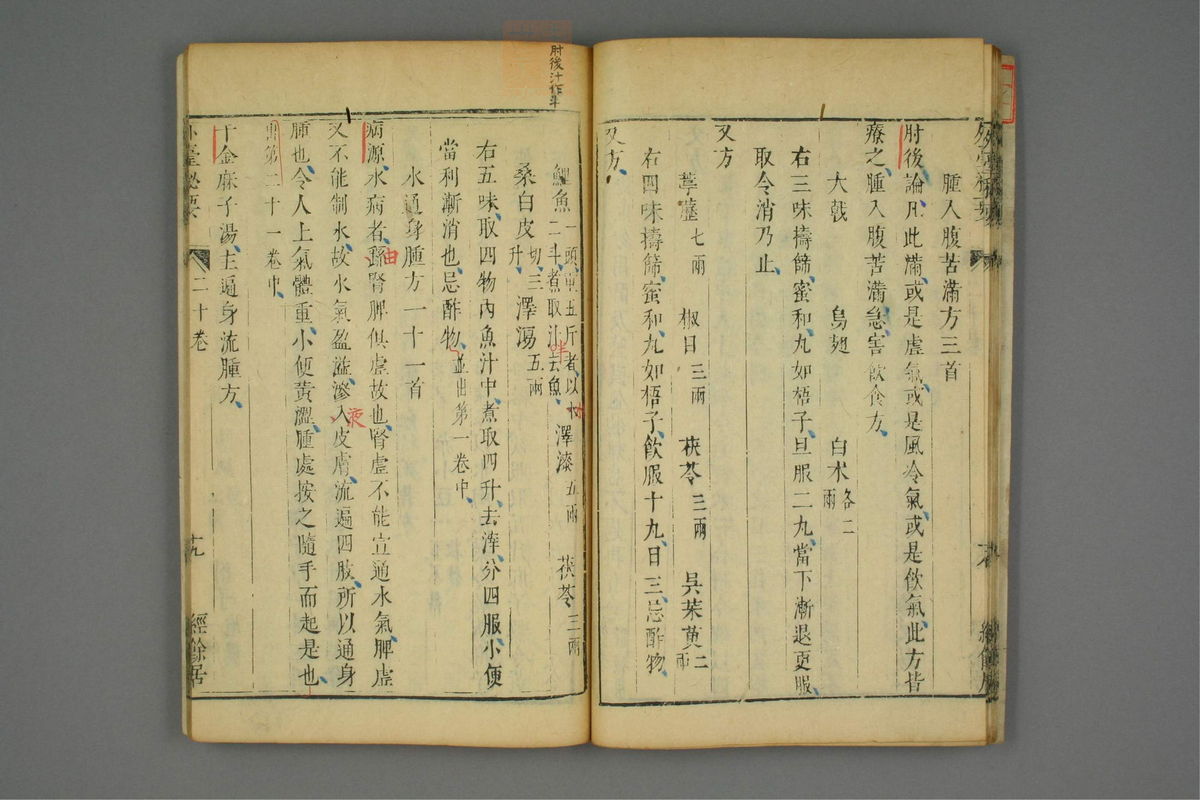 腫入腹苦滿方三首
肘後論凡此滿或是虛氣或是風冷氣或是飲氣此方皆
療之腫入腹苦滿急害飲食方
大戟 烏翅 白术各二兩
右三味擣篩蜜和丸如梧子旦服二丸當下漸退更服
取令消乃止
又方
葶藶七兩 椒目三兩 茯苓三兩 吳茱萸二兩
右四味擣篩蜜和丸如梧子飲服十丸日三忌酢物
又方
鯉魚一頭重五斤者以水二斗煮取汁去魚 澤漆五兩 茯苓三兩
桑白皮切三升 澤瀉五兩
右五味取四物內魚汁中煮取四升去滓分四服小便
當利漸消也忌酢物並出第一卷中
水通身腫方一十一首
病源水病者由腎脾俱虛故也腎虛不能宣通水氣脾虛
又不能制水故水氣盈溢滲入皮膚流遍四肢所以通身
腫也令人上氣體重小便黃澀腫處按之隨手而起是也
出第二十一卷中
千金麻子湯主遍身流腫方
外臺秘要 二十卷 十九 經餘居
肘後汁作半